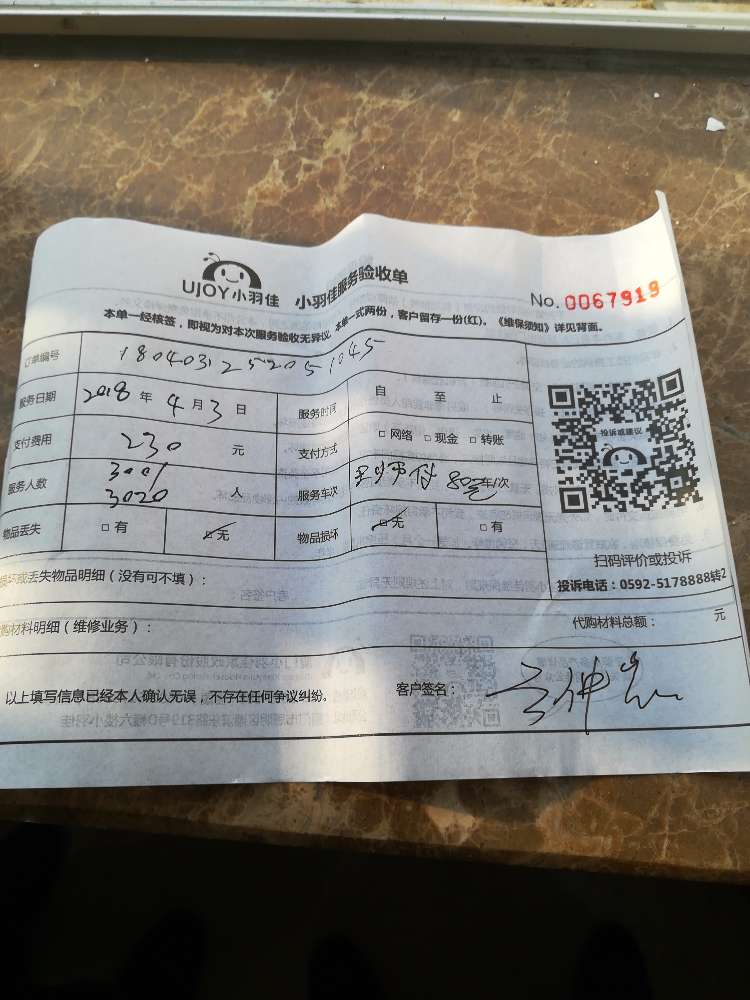 UJOY小羽佳 小羽佳服务验收单
No. 0067919
本单一经核签，即视为对本次服务验收无异议，本单一式两份，客户留存一份(红)。《维保须知》详见背面。
订单编号 180403125205 1045
服务日期 2018 年 4 月 3 日 服务时间 自 至 止
支付费用 230 元 支付方式 □网络 □现金 □转账
服务人数 3001 3020 人 服务车次 付 80 车/次
物品丢失 □有 □无 物品损坏 □无 □有
投诉或建议
扫码评价或投诉
投诉电话：0592-5178888转2
损坏或丢失物品明细（没有可不填）：
购材料明细（维修业务）： 代购材料总额： 元
以上填写信息已经本人确认无误，不存在任何争议纠纷。 客户签名：